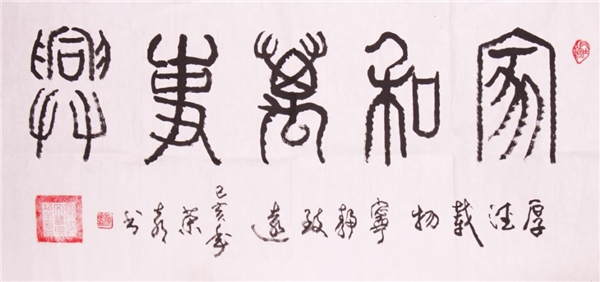 家和萬事興
厚德載物 寧靜致遠
己亥年
書